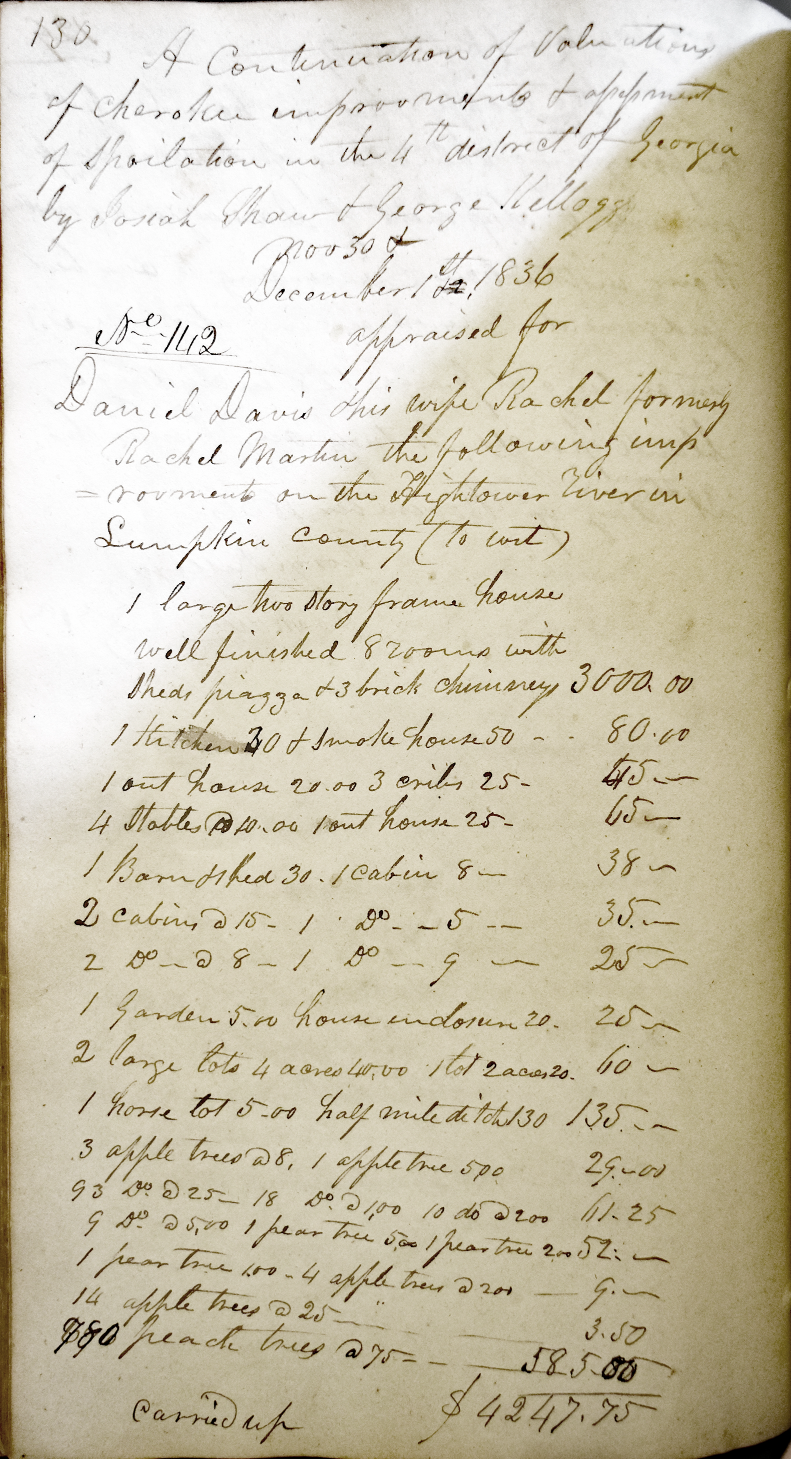 130
A Continuation of Valuations
of cherokee improovments & assessment
of Spoilation in the 4th district of Georgia
by Josiah Shaw & George Kellogg
Nov 30 &
December 1st, 1836
No 142 appraised for
Daniel Davis & his wife Rachel formerly
Rachel Martin the following imp
=rovments on the Hightower River in
Lumpkin county (to wit)
1 large two story frame house
well finished 8 rooms with
Sheds piazza & 3 brick chimneys 3000.00
1 Kitchen 30 & smoke house 50 - - 80.00
1 out house 20.00 3 cribs 25- 45.—
4 Stables @ 10.00 1 out house 25- 65—
1 Barn & shed 30. 1 cabin 8— 38—
2 cabins @ 15- 1 Do - - 5 -- 35.—
2 Do — @ 8 — 1 Do — 9 — 25—
1 Garden 5.00 house enclosure 20. 25—
2 large lots 4 acres 40.00 1 lot 2 acres 20. 60—
1 horse lot 5.00 half mile ditch 130 135.—
3 apple trees @ 8, 1 apple tree 500 29.00
93 Do. @ 25— 18 Do. @ 1,00 10 do @ 200 61.25
9 Do @ 5,00 1 pear tree 5,00 1 pear tree 200 52.—
1 pear tree 1.00 - 4 apple trees @ 200 — 9.—
14 apple trees @ 25— 3.50
780 peach trees @ 75 — — 585.00
carried up $4247.75